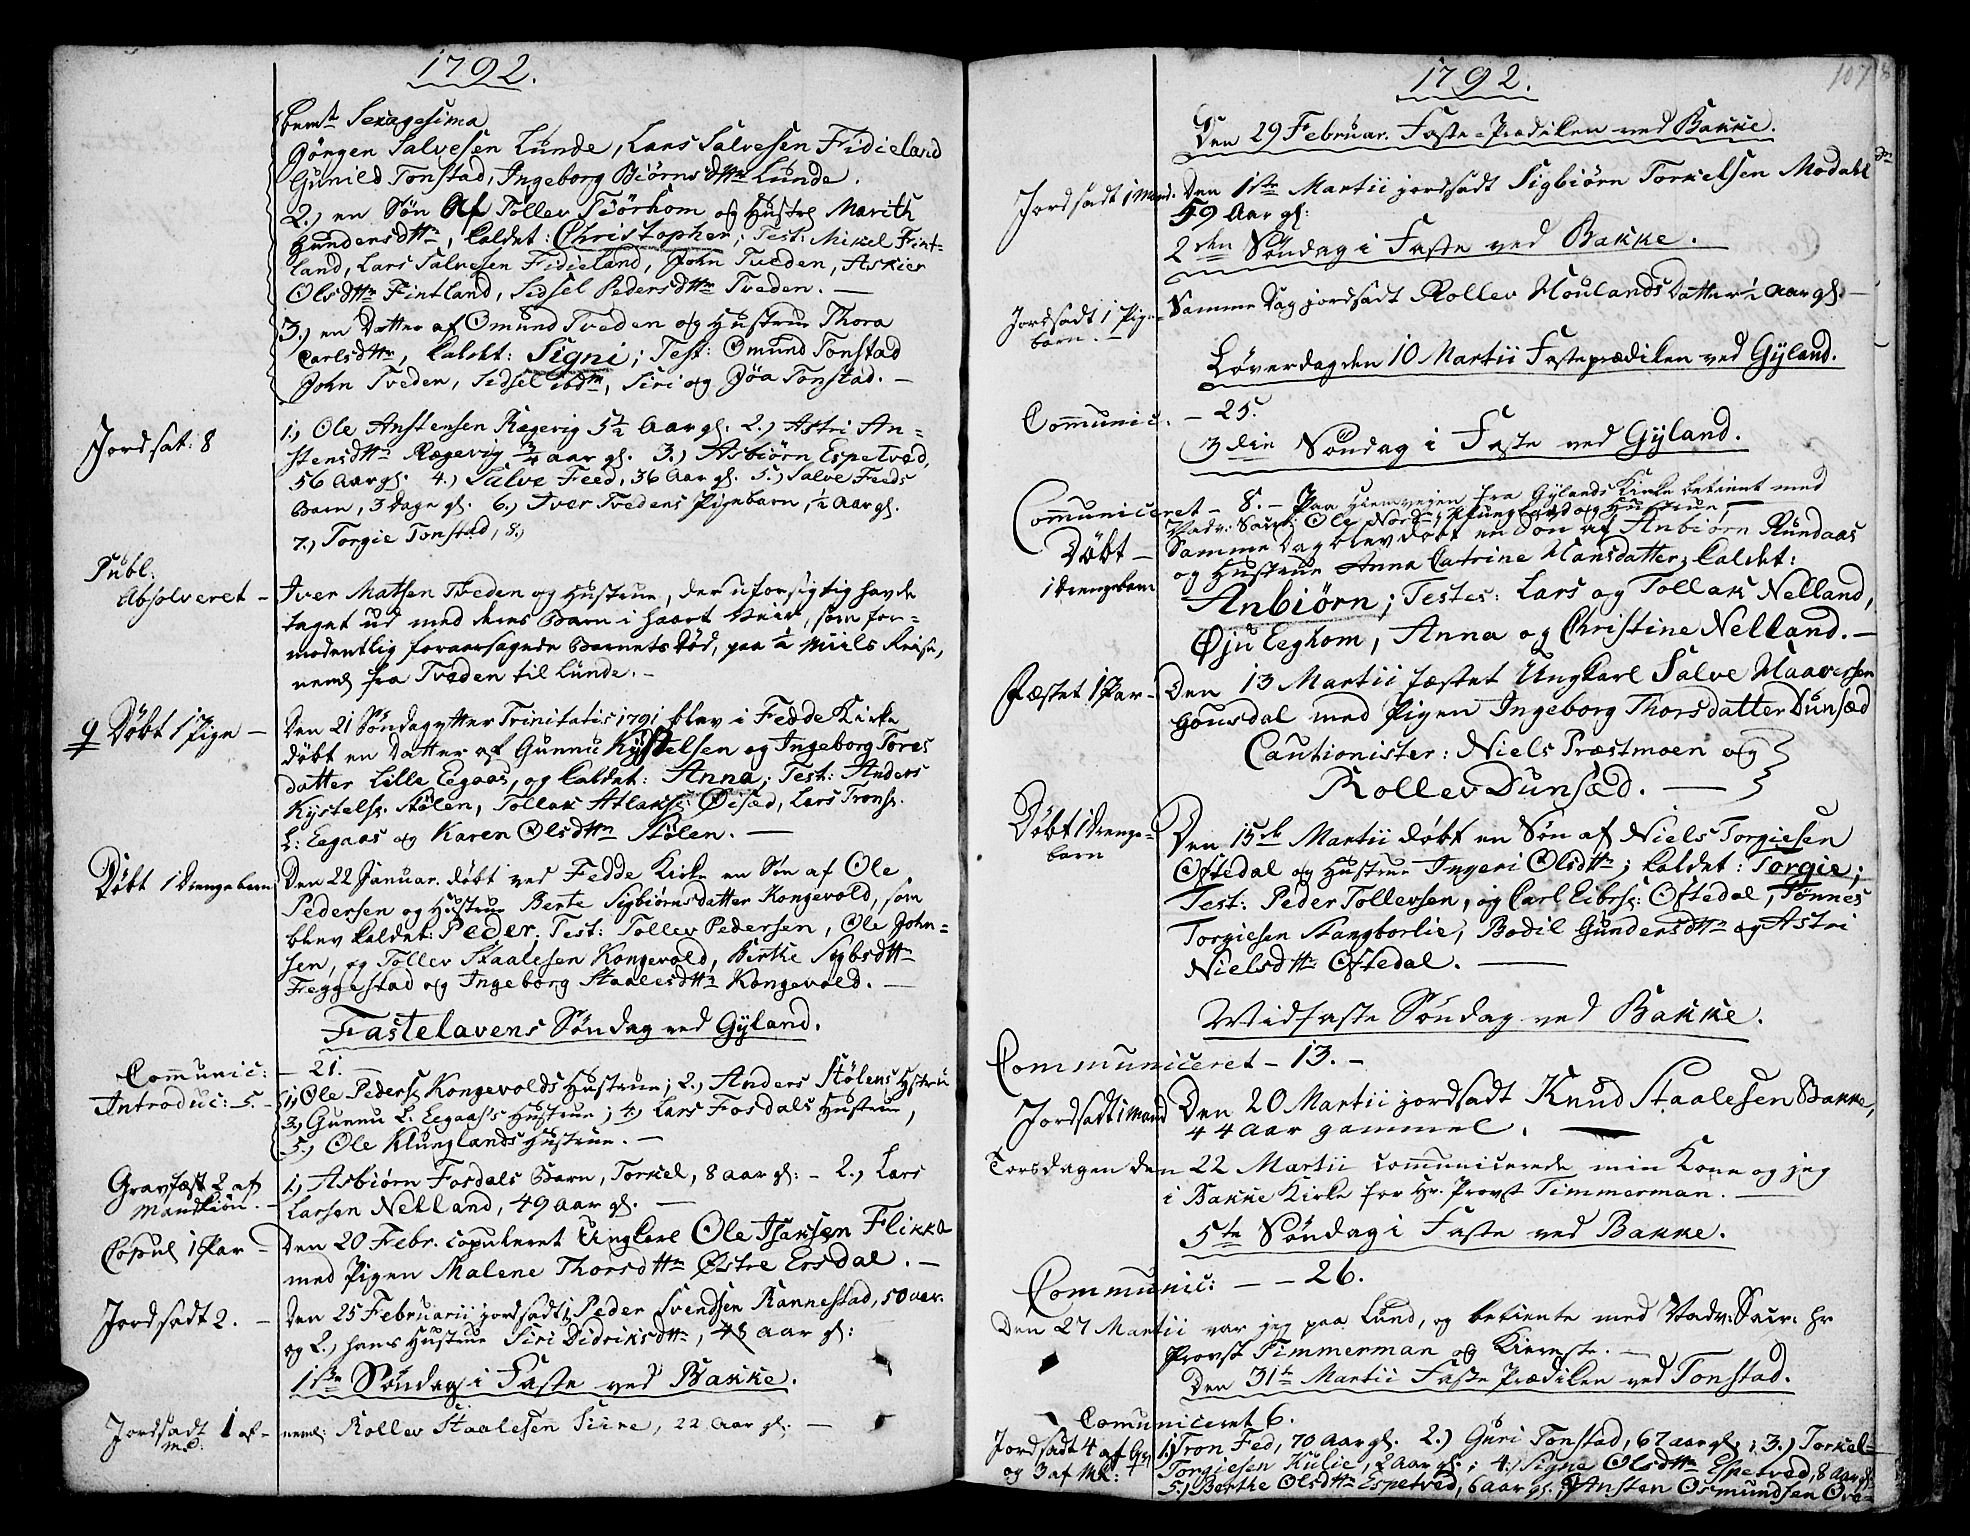 1792.
bemt Sexagesima
Jörgen Salvesen Lunde, Lars Salvesen Fidieland
Gunild Tonstad, Ingeborg Biörnsdttr Lunde.
2.) en Søn af Tollev Tiörhom og Hustr. Marith
Gundersdttr, kaldet: Christopher; Test: Mikel Fint-
land, Lars Salvesen Fidieland, John Tveden, Askier
Olsdttr Fintland, Sidsel Pedersdttr Tveden. —
3.) en Datter af Omund Tveden og Hustrue Thora
Carlsdttr, kaldet: Signi; Test: Omund Tonstad
John Tveden, Sidsel ibdm, Siri og Jöa Tonstad. —
Jordsat: 8
1.) Ole Anstensen Rægevig 5½ Aar gl. 2.) Astri An-
stensdttr Rægevig ¾ aar gl. 3.) Asbiörn Espetved,
56 Aar gl. 4.) Salve Feed, 36 Aar gl. 5.) Salve Feeds
Barn, 3 Dage gl. 6.) Iver Tvedens Pigebarn, ½ Aar gl.
7.) Torgie Tonstad, 8.)
Publ:
Absolveret —
Iver Matsen Tveden og Hustrue, der uforsigtig havde
taget ud med deres Barn i haart Veir, som for-
modentlig foraarsagede Barnets Død, paa ½ Miils Reise,
neml. fra Tveden til Lunde. —
Döbt 1 Pige —
Den 21 Søndag efter Trinitatis 1791 blev i Fedde Kirke
döbt en Datter af Gunnu Kystelsen og Ingeborg Tores
datter Lille Eegaas, og kaldet: Anna; Test: Anders
Kystels. Stölen, Tollak Atlaks. Öisæd, Lars Trons.
L: Eegaas og Karen Olsdttr Stölen. —
Döbt 1 Drengebarn
Den 22 Januar. döbt ved Fedde Kirke en Søn af Ole
Pedersen og Hustrue Berte Sigbiörnsdatter Kongevold, som
blev kaldet: Peder; Test: Tollev Pedersen, Ole John-
sen, og Tollev Staalesen Kongevold, Birthe Sigbsdttr
Freggestad og Ingeborg Staalesdttr Kongevold. —
Fastelavens Søndag ved Gyland.
Communic: — 21. —
Introduc: 5. —
1.) Ole Peders. Kongevolds Hustrue; 2.) Anders Stölens Hstrue
3.) Gunnu L. Eegaas's Hustrue; 4.) Lars Fosdals Hustrue,
5.) Ole Klunglands Hustrue. —
Gravfæst 2 af
Mandkiön. —
1.) Asbiörn Fosdals Barn, Torkel, 8 aar gl: — 2.) Lars
Larsen Nelland, 49 aar gl. —
Copul 1 Par —
Den 20 Febr. copuleret Ungkarl Ole Isaksen Flikka
med Pigen Malene Thorsdttr Østre Ersdal. —
Jordsadt 2. —
Den 25 Februarii jordsadt 1, Peder Svendsen Rannestad, 50 aar.
og 2.) hans Hustrue Siri Didriksdttr, aar gl:
1ste Søndag i Faste ved Bakke.
Jordsadt 1 af —
neml: Rollev Staalesen Siire, 22 aar gl: —
1792.
107
Den 29 Februar. Faste-Prædiken ved Bakke.
Jordsadt 1 Mand. Den 1ste Martii jordsadt Sigbiörn Torkelsen Modahl
59 Aar gl:
2den Søndag i Faste ved Bakke.
Jordsadt 1 Pige-
barn. —
Samme Dag jordsadt Rollev Houlands Datter ½ Aar gl. —
Löverdag den 10 Martii Fasteprædiken ved Gyland.
Communic. — 25.
3die Søndag i Faste ved Gyland.
Communiceret — 8. — Paa Hiemvejen fra Gylands Kirke betient med
Nadv: Sacr: Ole Nord: Klungland og Hustrue. —
Döbt —
1 Drengebarn
Samme Dag blev döbt en Søn af Anbiörn Rundaas
og Hustrue Anna Catrine Hansdatter; kaldet:
Anbiörn; Testes: Lars og Tollak Nelland,
Øju Eeghom, Anna og Christine Nelland. —
Fæstet 1 Par —
Den 13 Martii fæstet Ungkarl Salve Haaversen
Gousdal med Pigen Ingeborg Thorsdatter Dunsæd
Cautionister: Niels Præstmoen og
Rollev Dunsæd. —
Döbt 1 Drenge-
barn
Den 15de Martii döbt en Søn af Niels Torgiesen
Oftedal og Hustrue Ingeri Olsdttr; kaldet: Torgie;
Test: Peder Tollevsen, og Carl Eibrs: Oftedal, Tönnes
Torgiesen Stangborlie, Bodil Gundersdttr og Astri
Nielsdttr Oftedal. —
Midfaste Søndag ved Bakke.
Communiceret — 13. —
Jordsadt 1 Mand
Den 20 Martii jordsadt Knud Staalesen Bakke,
44 Aar gammel. —
Torsdagen den 22 Martii communicerede min Kone og jeg
i Bakke Kirke for Hr. Provst Timmerman. —
5te Søndag i Faste ved Bakke.
Communic: — — 26.
Den 27 Martii var jeg paa Lund, og betiente med Nadv: Sacr: Hr
Provst Timmerman og Kiereste. —
Den 31te Martii Faste Prædiken ved Tonstad.
— Communiceret 6.
Jordsadt 4 af Qvk
og 3 af Mk:
1.) Tron Fed, 70 Aar gl. 2.) Guri Tonstad, 67 aar gl.; 3.) Torkel
Torgiesen Kulie, 2 Aar gl.; 4.) Signe Olsdttr Espetved, 8 Aar gl.
5.) Berthe Olsdttr Espetved, 6 aar gl. Ansten Osmundsen Øve-